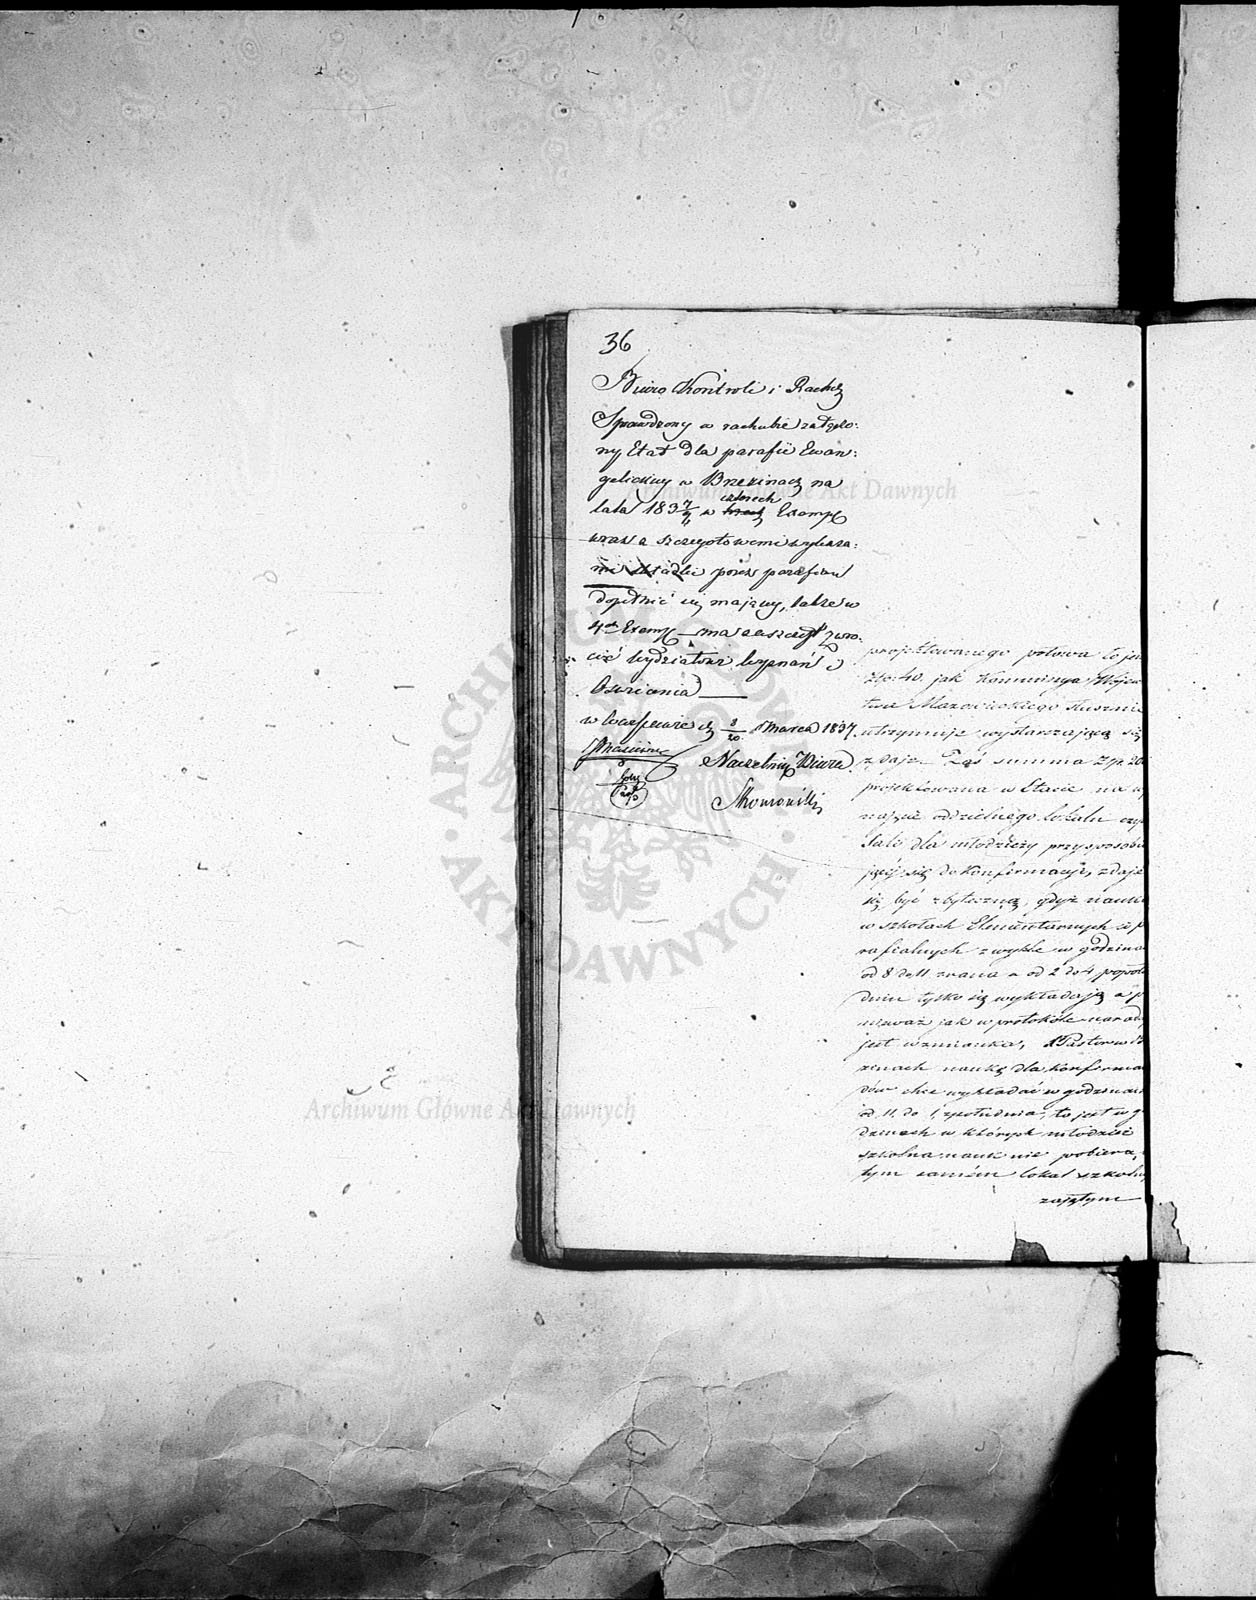 36
Biuro Kontroli i Rachy
Sprawdzony w rachubie załączo:
ny Etat dla parafii Ewan:
gelickiey w Brzezinach na
lata 1837/9 w czterech Exempl
wraz z szczegółowemi wykaza:
mi składki przez parafian
dopełnić się maiącey, także w
4ch Exempl — ma zaszczyt zwró:
cić Wydziałowi Wyznań i
Oświecenia —
w Warszawie d. 8/20 Marca 1837.
Naczelnik Biura
projektowanego połowa to jest
Złp: 40. jak Kommissya Wojew
twa Mazowieckiego słusznie
utrzymuje wystarczającą się
zdaje. Zaś summa Złp. 20
projektowana w Etacie na wy
najęcie oddzielnego lokalu czy
Sali dla młodzieży przysposobia
jącéj się do Konfirmacji, zdaje
się być zbyteczną, gdyż nauki
w szkołach Elementarnych i p
rafialnych zwykle w godzina
od 8 do 11 zrana a od 2 do 4 popołu
dniu tylko się wykładają a p
nieważ jak w protokóle narady
jest wzmianka, Pastor w B
zinach naukę dla konfirma
dów chce wykładać w godzinach
od 11. do 1. z południa, to jest w g
dzinach w których młodzież
szkolna nauk nie pobiera,
tym samém lokal szkolny
zajętym
Archiwum Główne Akt Dawnych
Archiwum Główne Akt Dawnych
ARCHIWUM GŁÓWNE AKT DAWNYCH